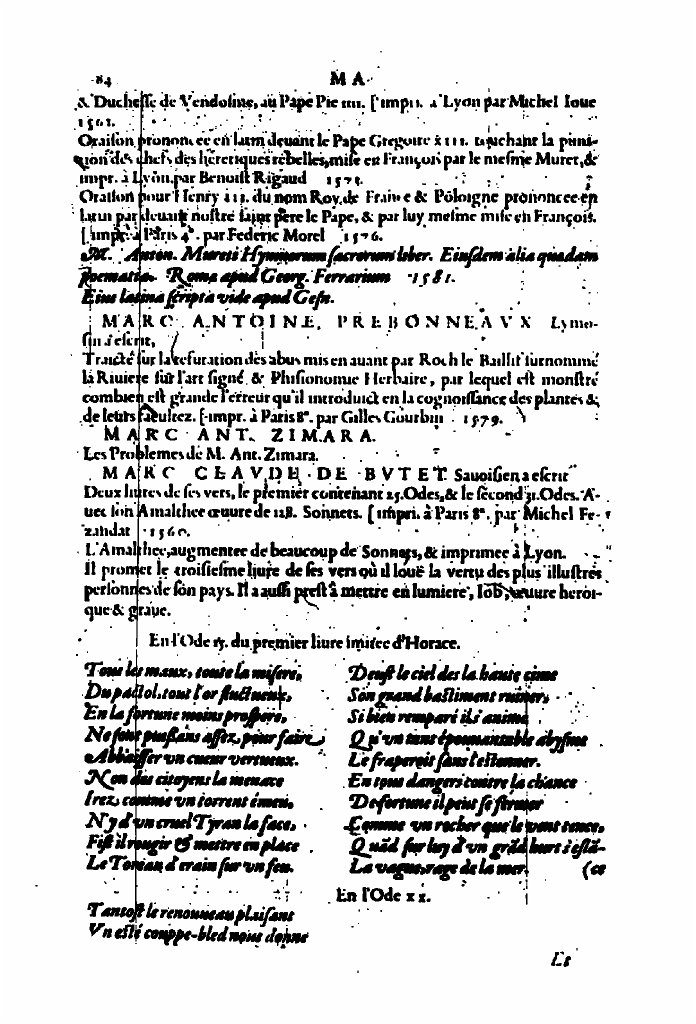 84 MA
& Duchesse de Vendosme, au Pape Pie IIII. [impri. à Lyon par Michel Ioue
1561.
Oraison prononcee en latin deuant le Pape Gregoire XIII. touchant la puni-
tion des chefs des heretiques rebelles, mise en François par le mesme Muret, &
impr. à Lyon par Benoist Rigaud 1573.
Oraison pour Henry III. du nom Roy de France & Pologne prononcee en
latin par deuant nostre saint pere le Pape, & par luy mesme mise en François.
[impr. à Paris 4°. par Federic Morel 1576.
M. Anton. Mureti Hymnorum sacrorum liber. Eiusdem alia quædam
poematia. Romæ apud Georg. Ferrarium 1581.
Eius latina scripta vide apud Gesn.
MARC ANTOINE PREBONNEAVX Lymo-
sin a escrit,
Traicté sur la refutation des abus mis en auant par Roch le Baillif surnommé
la Riuiere sur l'art signé & Phisionomie Herbaire, par lequel est monstré
combien est grande l'erreur qu'il introduict en la cognoissance des plantes &
de leurs facultez. [impr. à Paris 8°. par Gilles Gourbin 1579.
MARC ANT. ZIMARA.
Les Problemes de M. Ant. Zimara.
MARC CLAVDE DE BVTET. Sauoisien a escrit
Deux liures de ses vers, le premier contenant 25. Odes, & le second 31. Odes. A-
uec son Amalthee œuure de 128. Sonnets. [impri. à Paris 8°. par Michel Fe-
zandat 1560.
L'Amalthee, augmentee de beaucoup de Sonnets, & imprimee à Lyon.
Il promet le troisiesme liure de ses vers où il louë la vertu des plus illustres
personnes de son pays. Il a aussi prest à mettre en lumiere, Iob, œuure heroi-
que & graue.
En l'Ode 15. du premier liure imitee d'Horace.
Tous les maux, toute la misere,
Du pactol tout l'or fluctueux,
En la fortune moins prospere,
Ne sont puissans assez, pour faire
Abbaisser vn cueur vertueux.
Non des citoyens la menace
Irez, comme vn torrent émeu,
N'y d'vn cruel Tyran la face,
Fist il rougir & mettre en place
Le Toreau d'erain sur vn feu.
Deust le ciel des la haute cime
Son grand bastiment ruiner,
Si bien remparé il s'anime
Qu'vn tant épouuantable abysme
Le fraperoit sans l'estonner.
En tous dangers contre la chance
De fortune il peut se fermer
Comme vn rocher que le vent tence,
Quãd sur luy d'vn grãd hurt s'eslã-
La vague, rage de la mer. (ce
En l'Ode xx.
Tantost le renouueau plaisant
Vn esté couppe-bled nous donne
Et